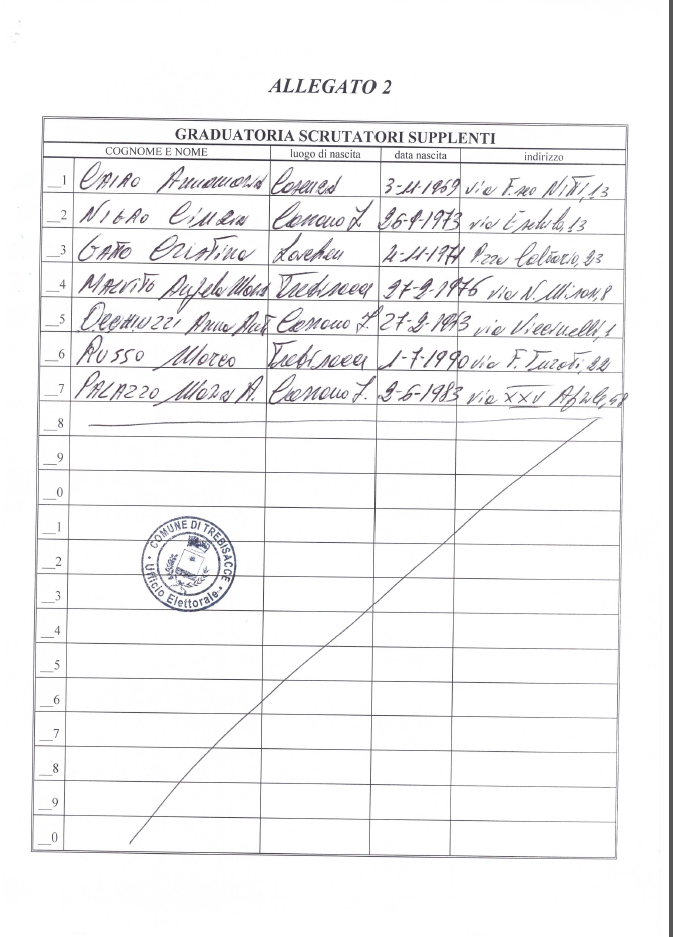 ALLEGATO 2
GRADUATORIA SCRUTATORI SUPPLENTI
COGNOME E NOME luogo di nascita data nascita indirizzo
__1 CAIRO Annamaria Cosenza 3-11-1969 via F.sco Nitti, 13
__2 NIGRO Cinzia Cassano J. 26-9-1973 via 13
__3 GATTO Cristina 4-11-1971 P.zza Calvario, 23
__4 MALVITO Angela Maria Trebisacce 27-2-1976 via N. 8
__5 Anna Cassano J. 27-2-1973 via 1
__6 RUSSO Marco Trebisacce 1-7-1990 via F. Turati, 22
__7 PALAZZO Maria A. Cassano J. 2-6-1983 via XXV Aprile, 58
__8
__9
__0
__1
__2
__3
__4
__5
__6
__7
__8
__9
__0
COMUNE DI TREBISACCE
Ufficio Elettorale